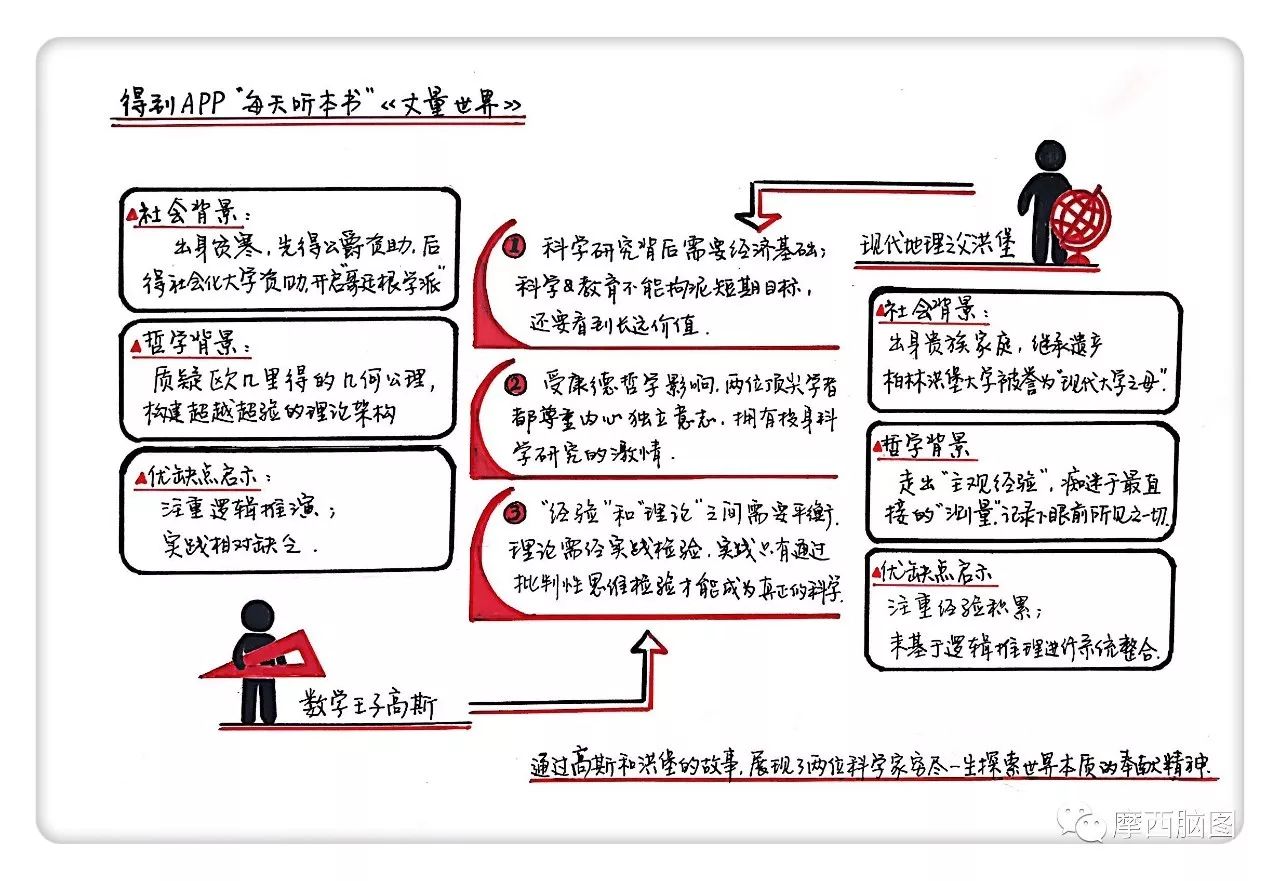 得到APP“每天听本书”《丈量世界》
社会背景：
出身贫寒，先得公爵资助，后
得社会化大学资助，开启“哥廷根学派”
哲学背景：
质疑欧几里得的几何公理，
构建超越超验的理论架构
优缺点启示：
注重逻辑推演；
实践相对缺乏．
数学王子高斯
① 科学研究背后需要经济基础；
科学&教育不能拘泥短期目标，
还要看到长远价值．
② 受康德哲学影响，两位顶尖学者
都尊重内心独立意志，拥有投身科
学研究的激情．
③ “经验”和“理论”之间需要平衡．
理论需经实践检验，实践只有通过
批判性思维检验才能成为真正的科学．
现代地理之父洪堡
社会背景：
出身贵族家庭，继承遗产
柏林洪堡大学被誉为“现代大学之母”．
哲学背景
走出“主观经验”，痴迷于最直
接的“测量”，记录下眼前所见之一切．
优缺点启示
注重经验积累；
未基于逻辑推理进行系统整合．
通过高斯和洪堡的故事，展现了两位科学家穷尽一生探索世界本质的奉献精神．
摩西脑图